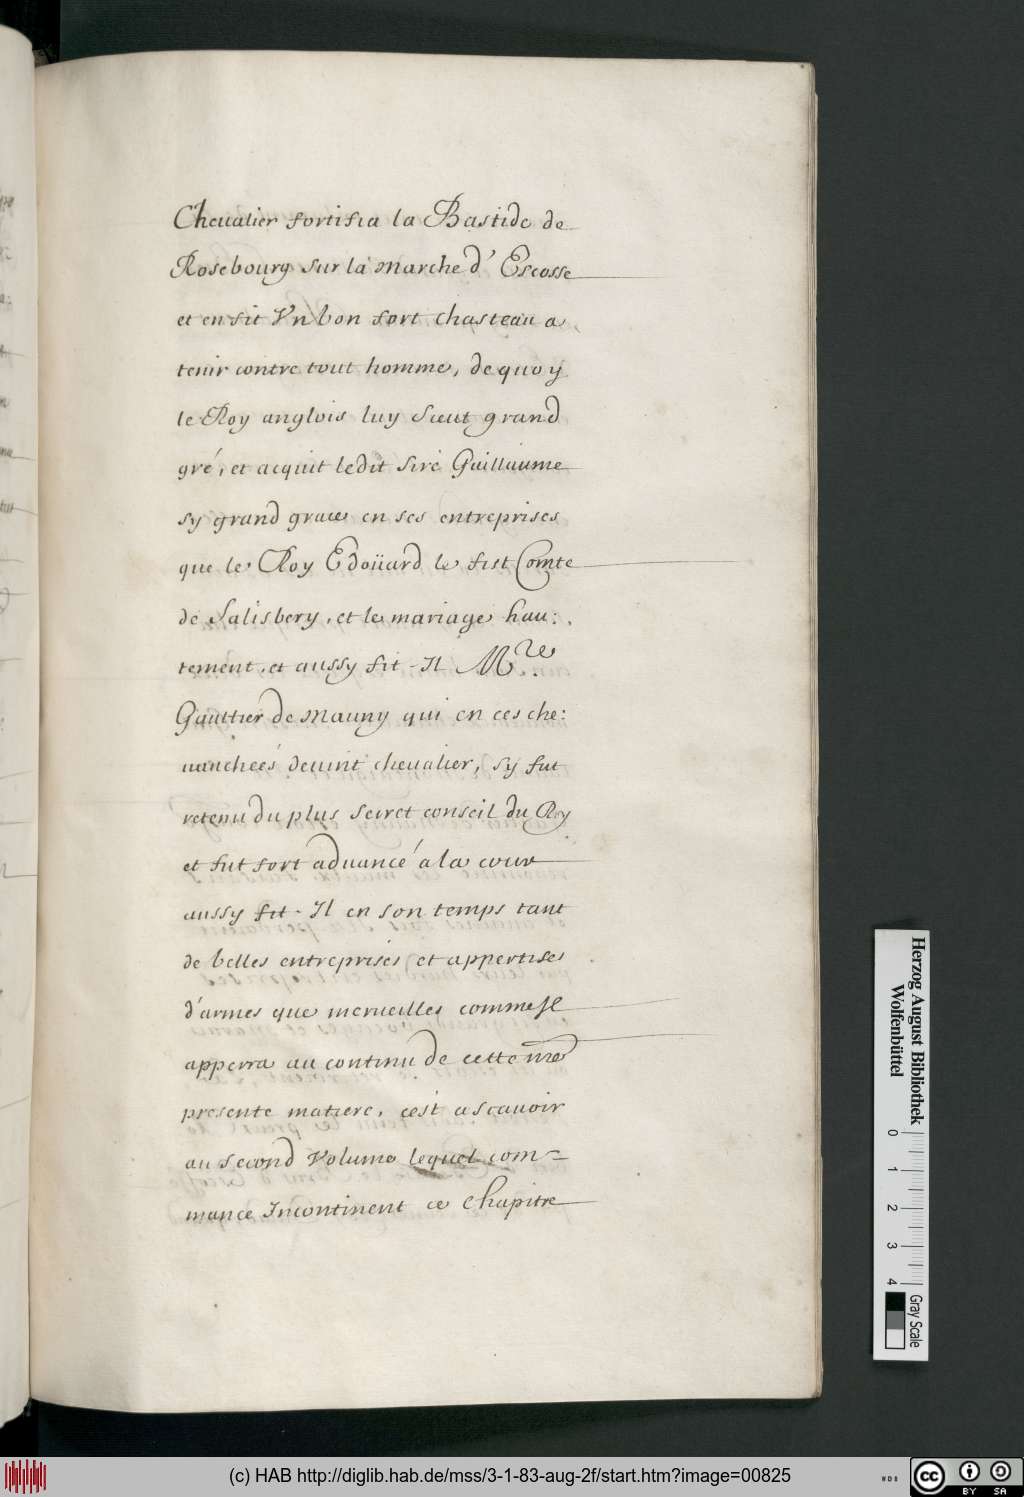 Cheualier fortifia la Bastide de
Rosebourg sur la marche d'Escosse
et en fit Vn bon fort chasteau a
tenir contre tout homme, de quoy
le Roy anglois luy sceut grand
gré, et acquit ledit sire Guillaume
sy grand grace en ses entreprises
que le Roy Edoüard le fist Comte
de Salisbery, et le mariage hau:
tement, et aussy fit-Il Mre.
Gauttier de Mauny qui en ces che:
uauchées deuint cheualier, sy fut
retenu du plus secret conseil du Roy
et fut fort aduancé a la cour
aussy fit-Il en son temps tant
de belles entreprises et appertises
d'armes que merueilles comme Il
apperra au continu de cette
presente matiere, c'est ascauoir
au second Volume lequel com=
mance Incontinent ce chapitre
Herzog August Bibliothek
Wolfenbüttel
0 1 2 3 4
Gray Scale
(c) HAB http://diglib.hab.de/mss/3-1-83-aug-2f/start.htm?image=00825
WDB
cc BY SA